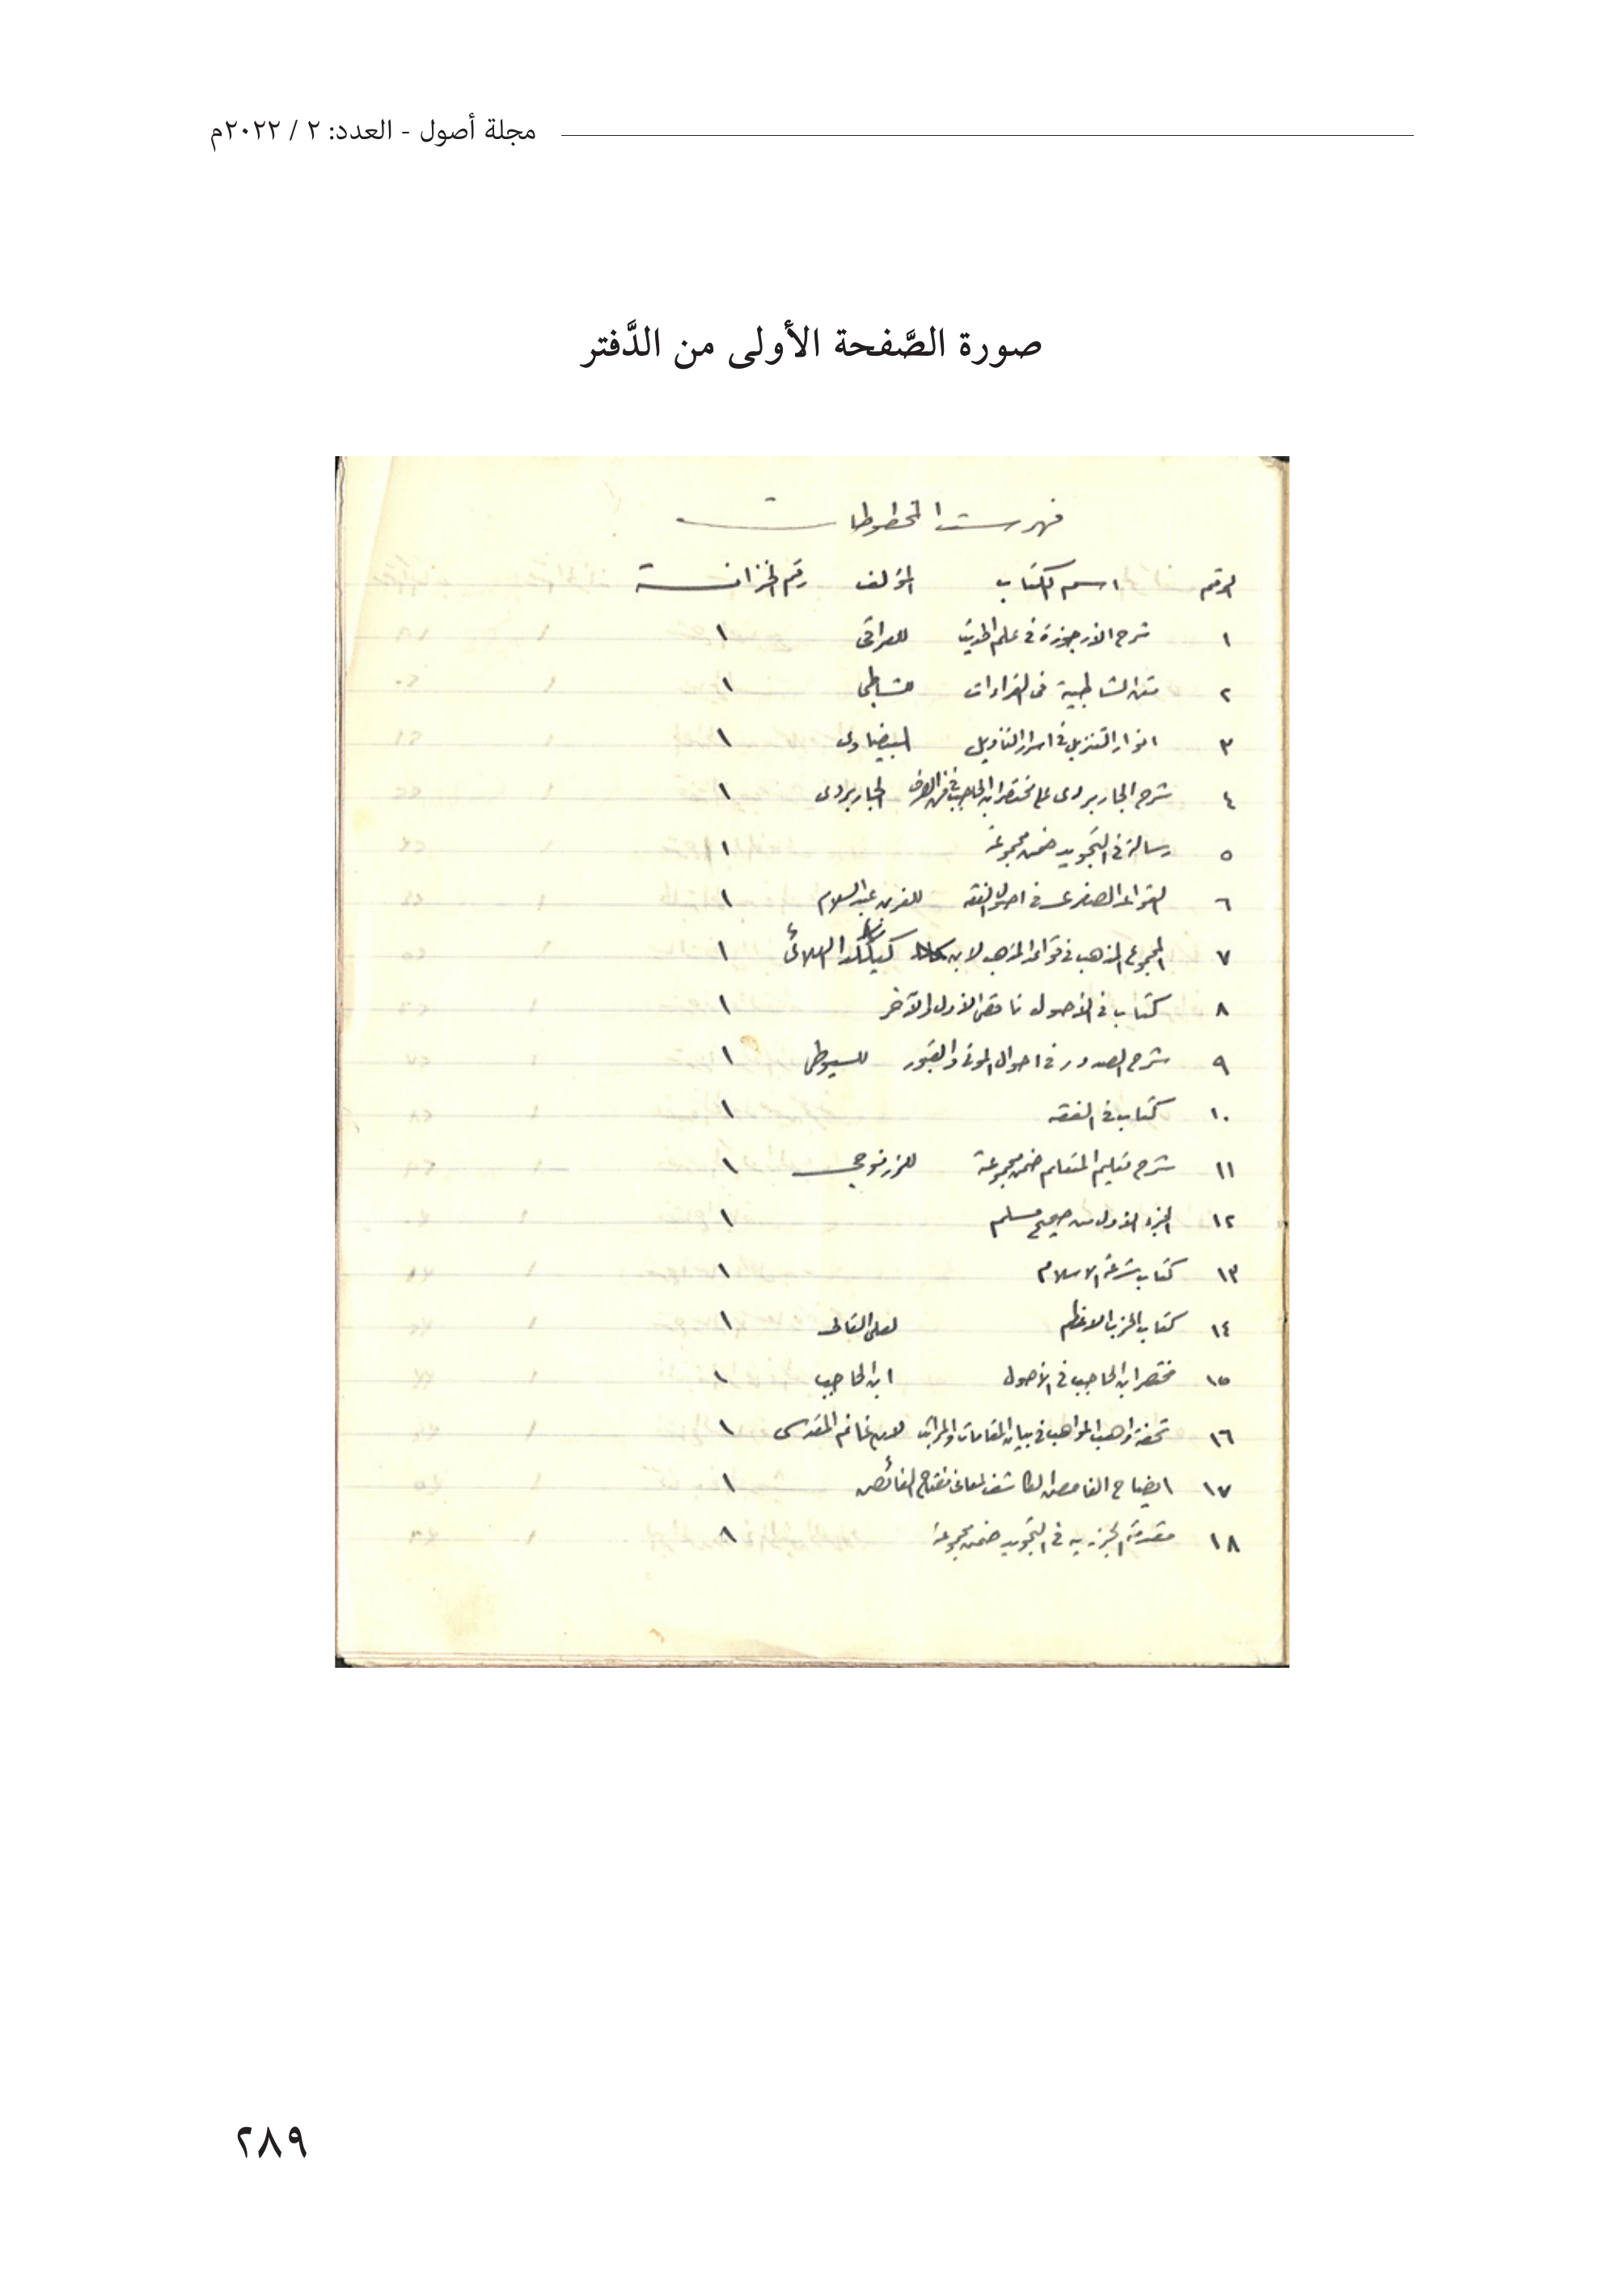 مجلة أصول - العدد: ٢ / ٢٠٢٢م
صورة الصَّفحة الأولى من الدَّفتر
فهرست المخطوطات
الرقم اسم الكتاب المؤلف رقم الخزانة
١ شرح الارجوزة في علم الحديث للعراقي ١
٢ متن الشاطبية في القراءات للشاطبي ١
٣ انوار التنزيل في اسرار التاويل البيضاوى ١
٤ شرح الجاربردى على مختصر ابن الحاجب في فن الصرف الجاربردى ١
٥ رسالة في التجويد ضمن مجموعة ١
٦ القواعد الصغرى في اصول الفقه للعز بن عبد السلام ١
٧ المجموع المذهب في قواعد المذهب لابن كيكلدا العلائي ١
٨ كتاب في الأصول ناقص الأول والآخر ١
٩ شرح الصدور في احوال الموتى والقبور للسيوطي ١
١٠ كتاب في الفقه ١
١١ شرح تعليم المتعلم ضمن مجموعة للزرنوجي ١
١٢ الجزء الاول من صحيح مسلم ١
١٣ كتاب شرعة الاسلام ١
١٤ كتاب الحزب الاعظم لعلي القاري ١
١٥ مختصر ابن الحاجب في الأصول ابن الحاجب ١
١٦ تحفة واهب المواهب في بيان المقامات والمراتب لابن غانم المقدسى ١
١٧ ايضاح الغامض الكاشف لمعاني مفتاح الفائض ١
١٨ مقدمة الجزرية في التجويد ضمن مجموعة ٨
٢٨٩